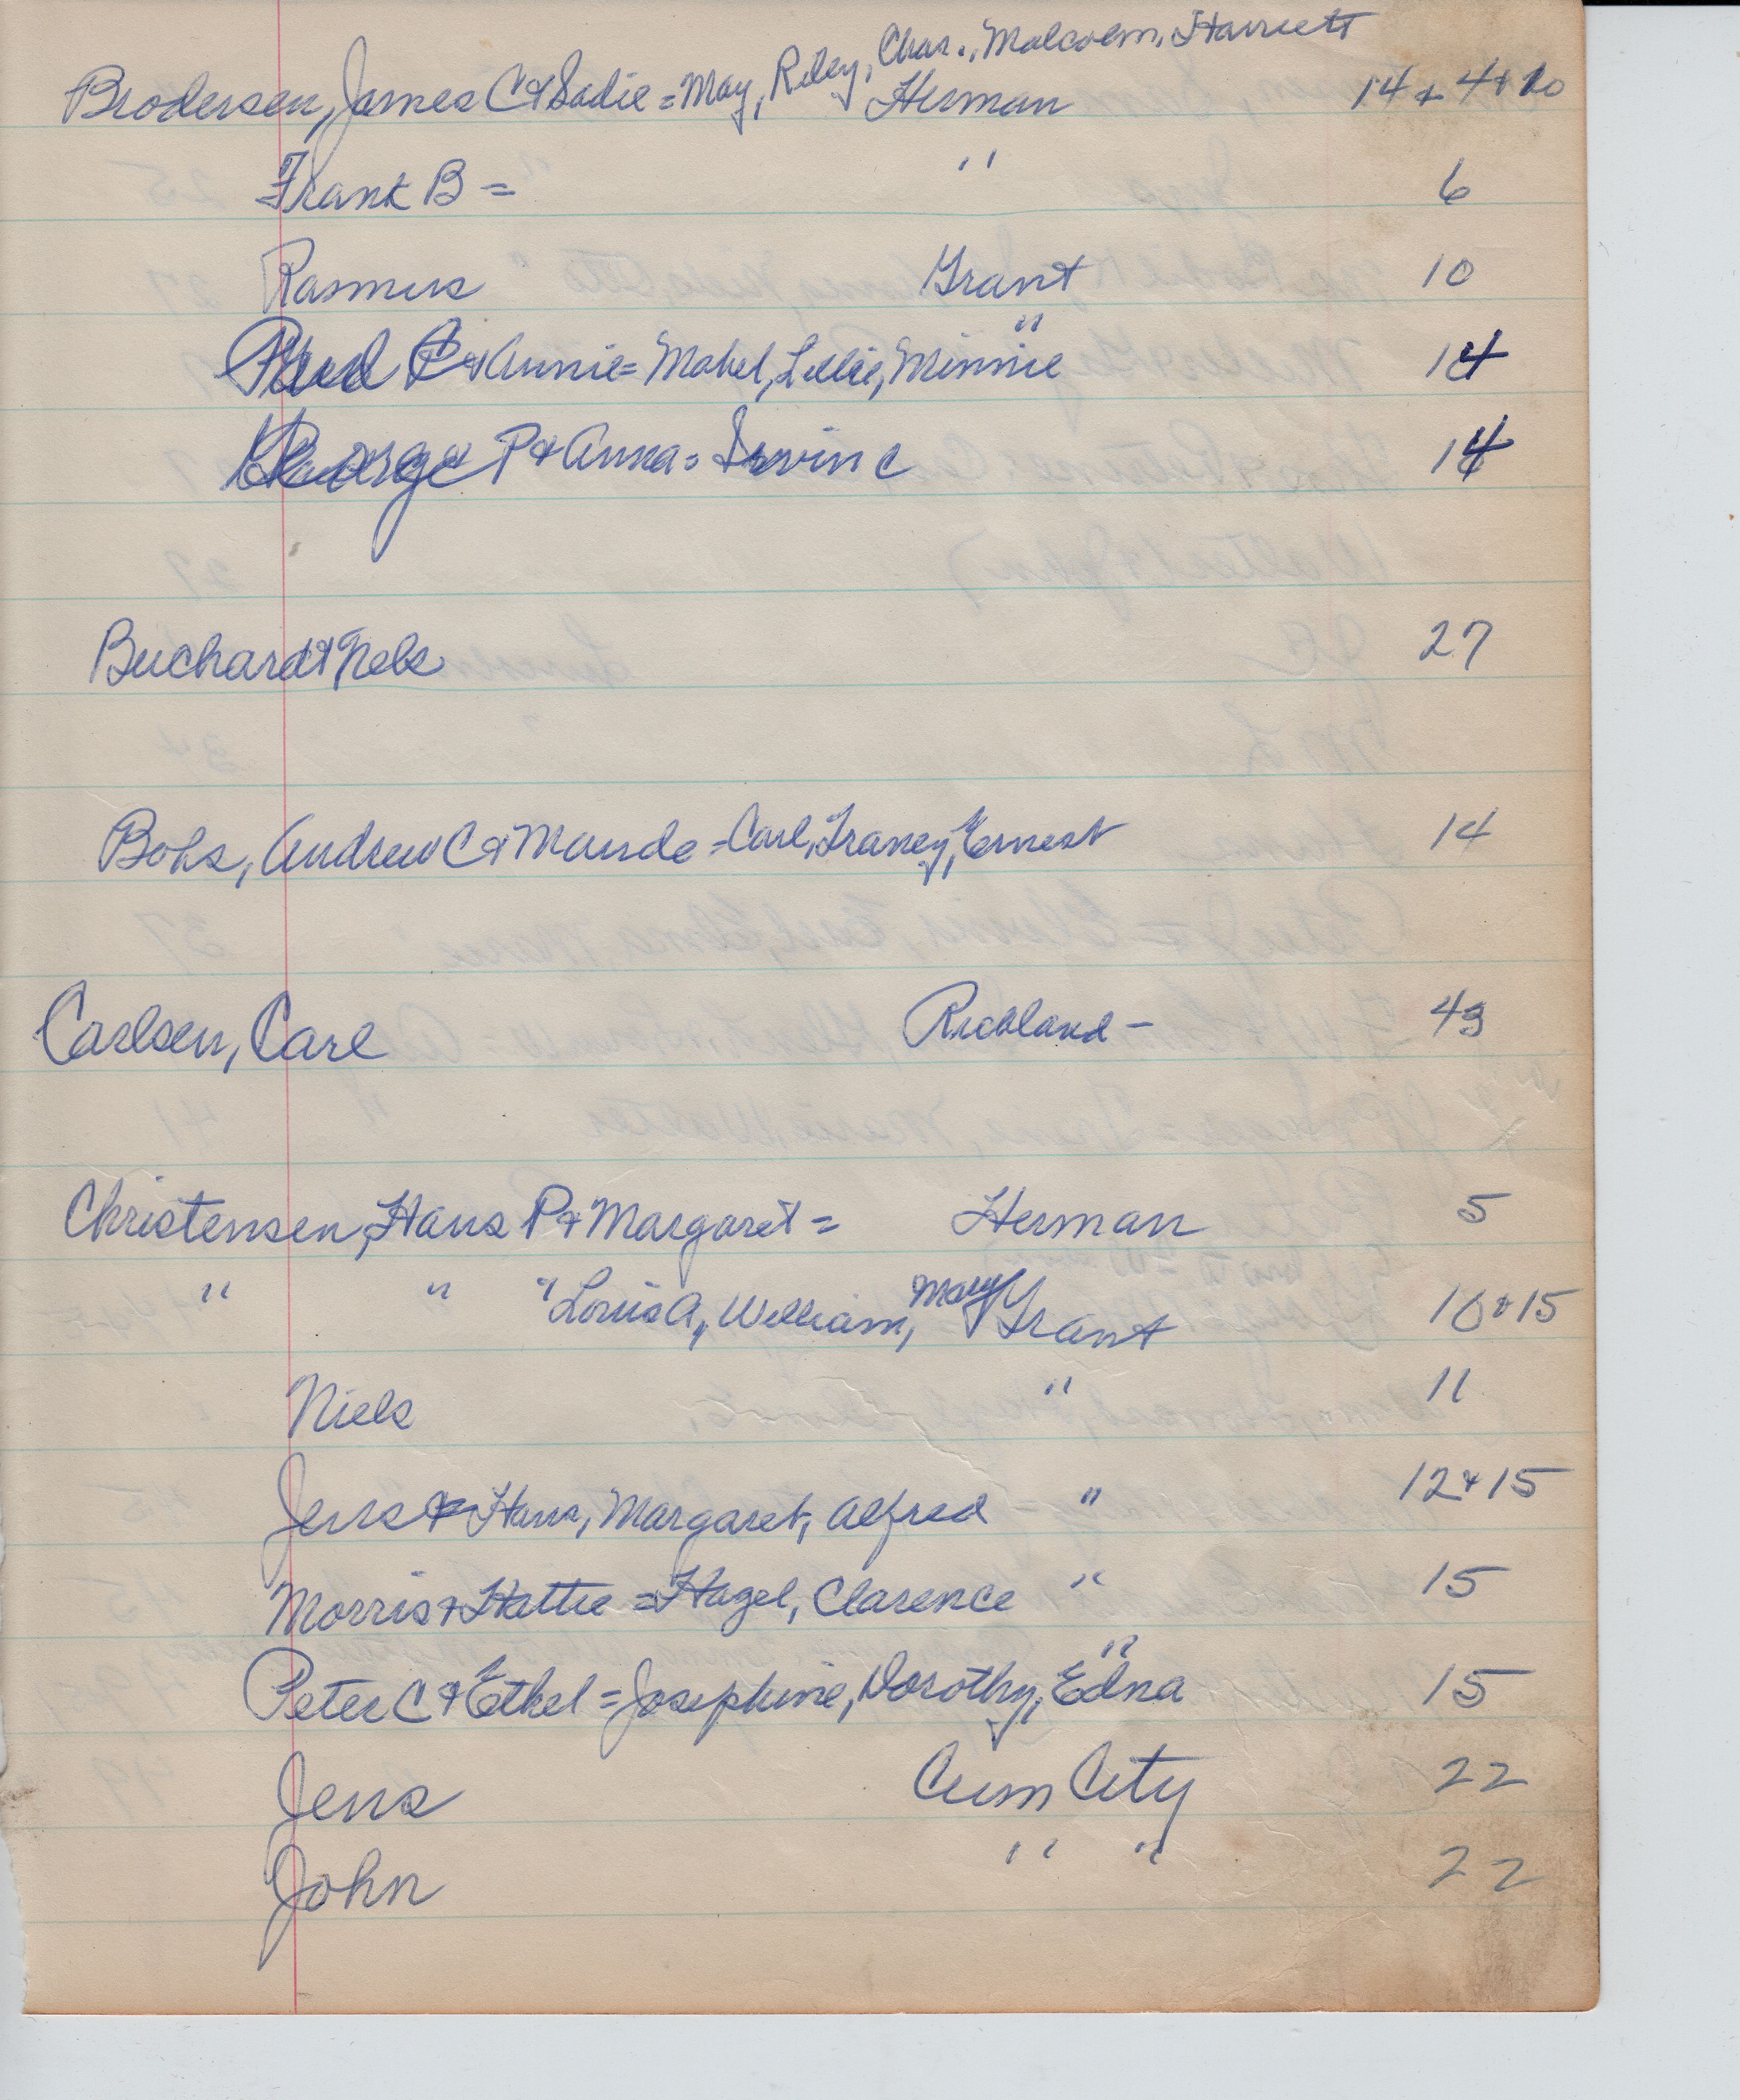 Brodersen, James C & Sadie = May, Riley, Chas., Malcolm, Harriett Herman 14 & 4 & 10
Frank B = " 6
Rasmus Grant 10
Paul C & Annie = Mabel, Lillie, Minnie " 14
George P & Anna = Irvin C 14
Buchardt Nels 27
Bohs, Andrew C & Maude = Carl, Franey, Ernest 14
Carlsen, Carl Richland - 43
Christensen, Hans P & Margaret = Herman 5
" " " Louis A, William, Mary Grant 10 & 15
Niels " 11
Jens & Hans, Margaret, Alfred - " 12 & 15
Morris & Hattie = Hazel, Clarence " 15
Peter C & Ethel = Josephine, Dorothy, Edna " 15
Jens Cum City 22
John " " 22